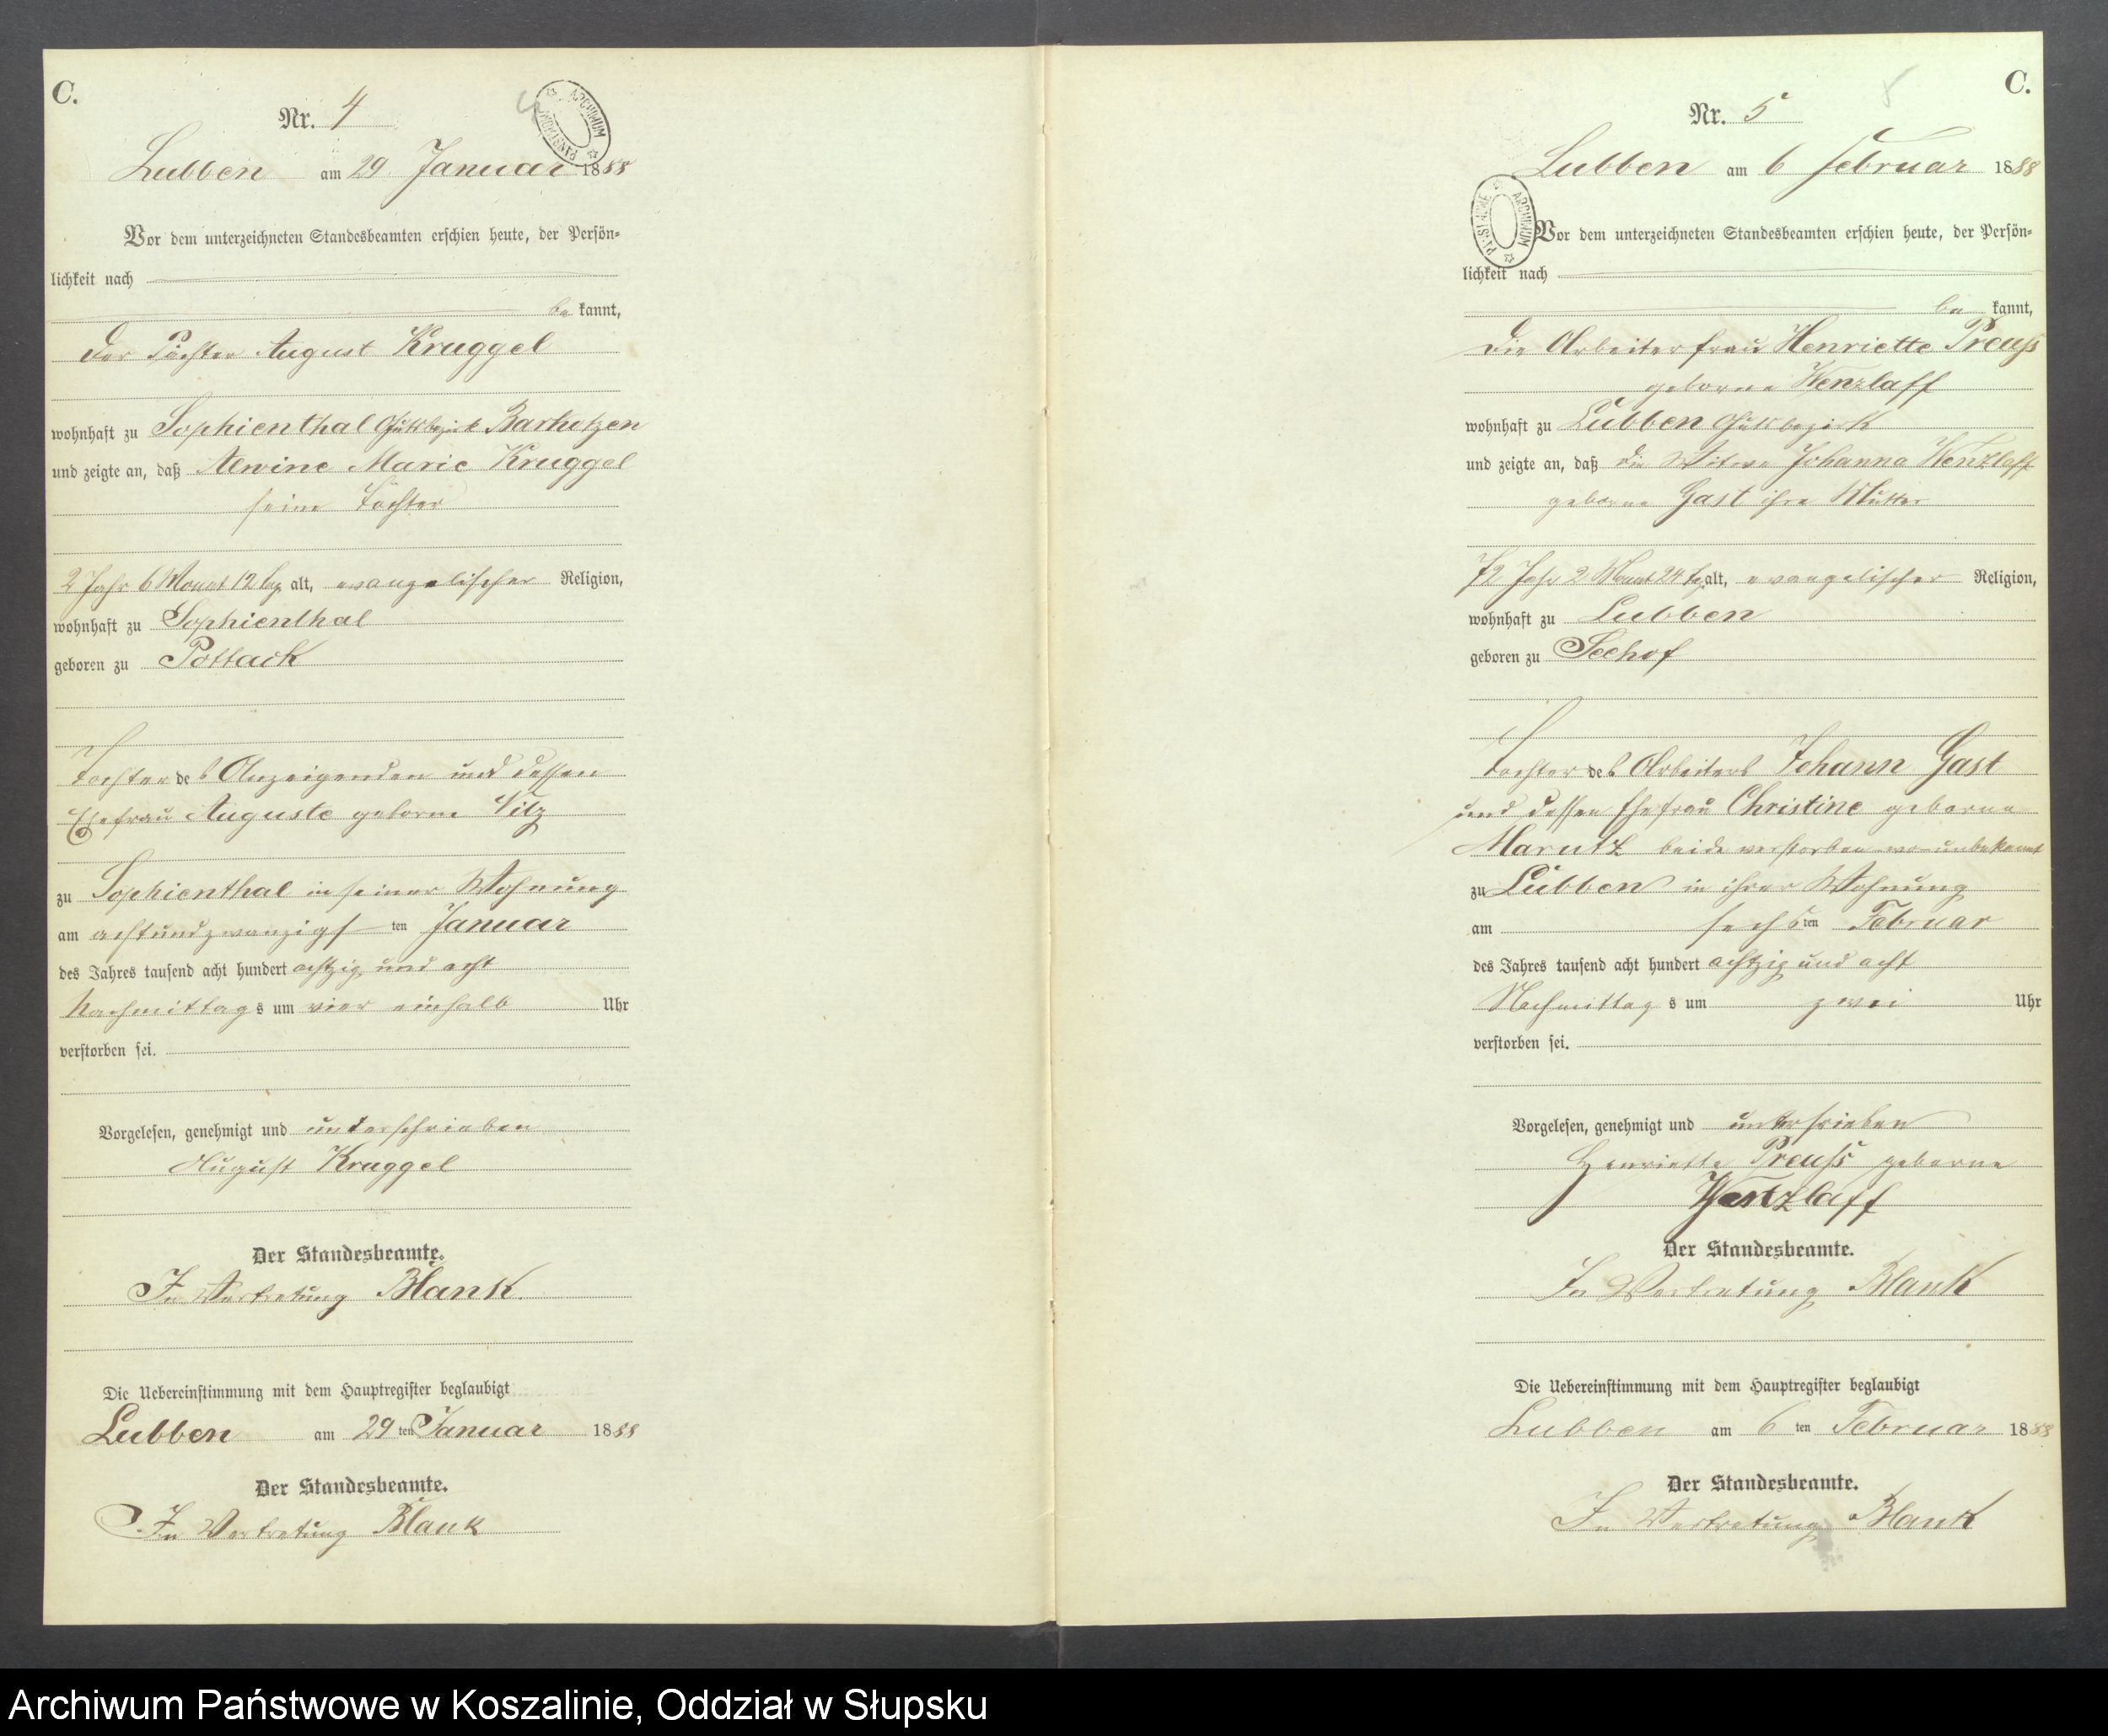 C.
Nr. 4
ARCHIWUM PAŃSTWOWE
Lubben am 29 Januar 1888
Vor dem unterzeichneten Standesbeamten erschien heute, der Persön-
lichkeit nach
be kannt,
der Pächter August Kruggel
wohnhaft zu Sophienthal Gutsbezirk Barkotzen
und zeigte an, daß Alwine Marie Kruggel
seine Tochter
2 Jahr 6 Monat 12 Tag alt, evangelischer Religion,
wohnhaft zu Sophienthal
geboren zu Pottack
Tochter des Anzeigenden und dessen
Ehefrau Auguste geborne Vitz
zu Sophienthal in seiner Wohnung
am achtundzwanzigsten Januar
des Jahres tausend acht hundert achtzig und acht
Nachmittags um vier einhalb Uhr
verstorben sei.
Vorgelesen, genehmigt und unterschrieben
August Kruggel
Der Standesbeamte.
In Vertretung Blank
Die Uebereinstimmung mit dem Hauptregister beglaubigt
Lubben am 29 ten Januar 1888
Der Standesbeamte.
In Vertretung Blank
C.
5
Nr. 5
Lubben am 6 Februar 1888
ARCHIWUM PAŃSTWOWE
Vor dem unterzeichneten Standesbeamten erschien heute, der Persön-
lichkeit nach
be kannt,
die Arbeiterfrau Henriette Preuß
geborne Wenzlaff
wohnhaft zu Lubben Gutsbezirk
und zeigte an, daß die Witwe Johanna Wentzlaff
geborne Gast ihre Mutter
72 Jahr 2 Monat 24 Tag alt, evangelischer Religion,
wohnhaft zu Lubben
geboren zu Seehof
Tochter des Arbeiters Johann Gast
und dessen Ehefrau Christine geborne
Marutz beide verstorben wo unbekannt
zu Lübben in ihrer Wohnung
am sechsten Februar
des Jahres tausend acht hundert achtzig und acht
Nachmittag s um zwei Uhr
verstorben sei.
Vorgelesen, genehmigt und unterschrieben
Henriette Preuß geborne
Wentzlaff
Der Standesbeamte.
In Vertretung Blank
Die Uebereinstimmung mit dem Hauptregister beglaubigt
Lubben am 6 ten Februar 1888
Der Standesbeamte.
In Vertretung Blank
Archiwum Państwowe w Koszalinie, Oddział w Słupsku